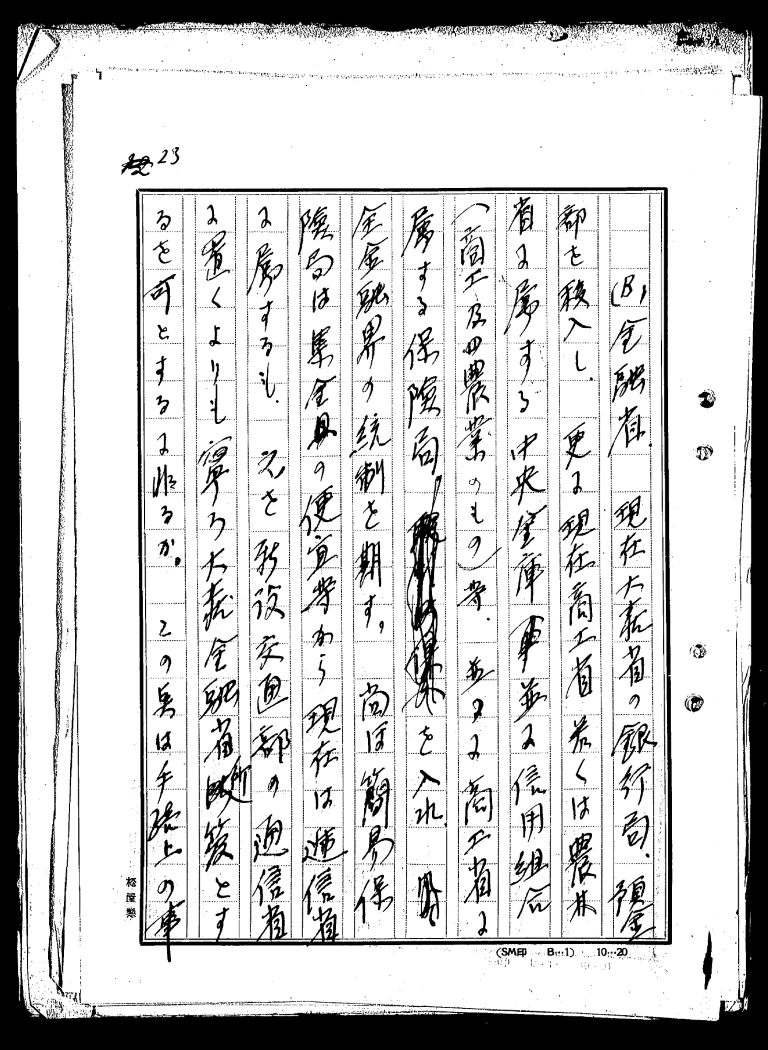 23
(B) 金融省. 現在大蔵省の銀行局、預金
部を移入し. 更に現在商工省若くは農林
省に属する中央金庫並に信用組合
(商工及農業のもの)等. 並に商工省に
属する保険局を入れ.
全金融界の統制を期す。 尚ほ簡易保
険局は集金の便宜等から現在は逓信省
に属するも. 之を新設交通部の通信省
に置くよりも寧ろ大蔵金融省所管とす
るを可とするに非るか。 この点は手続上の事
(SM印 B…1) 10…20